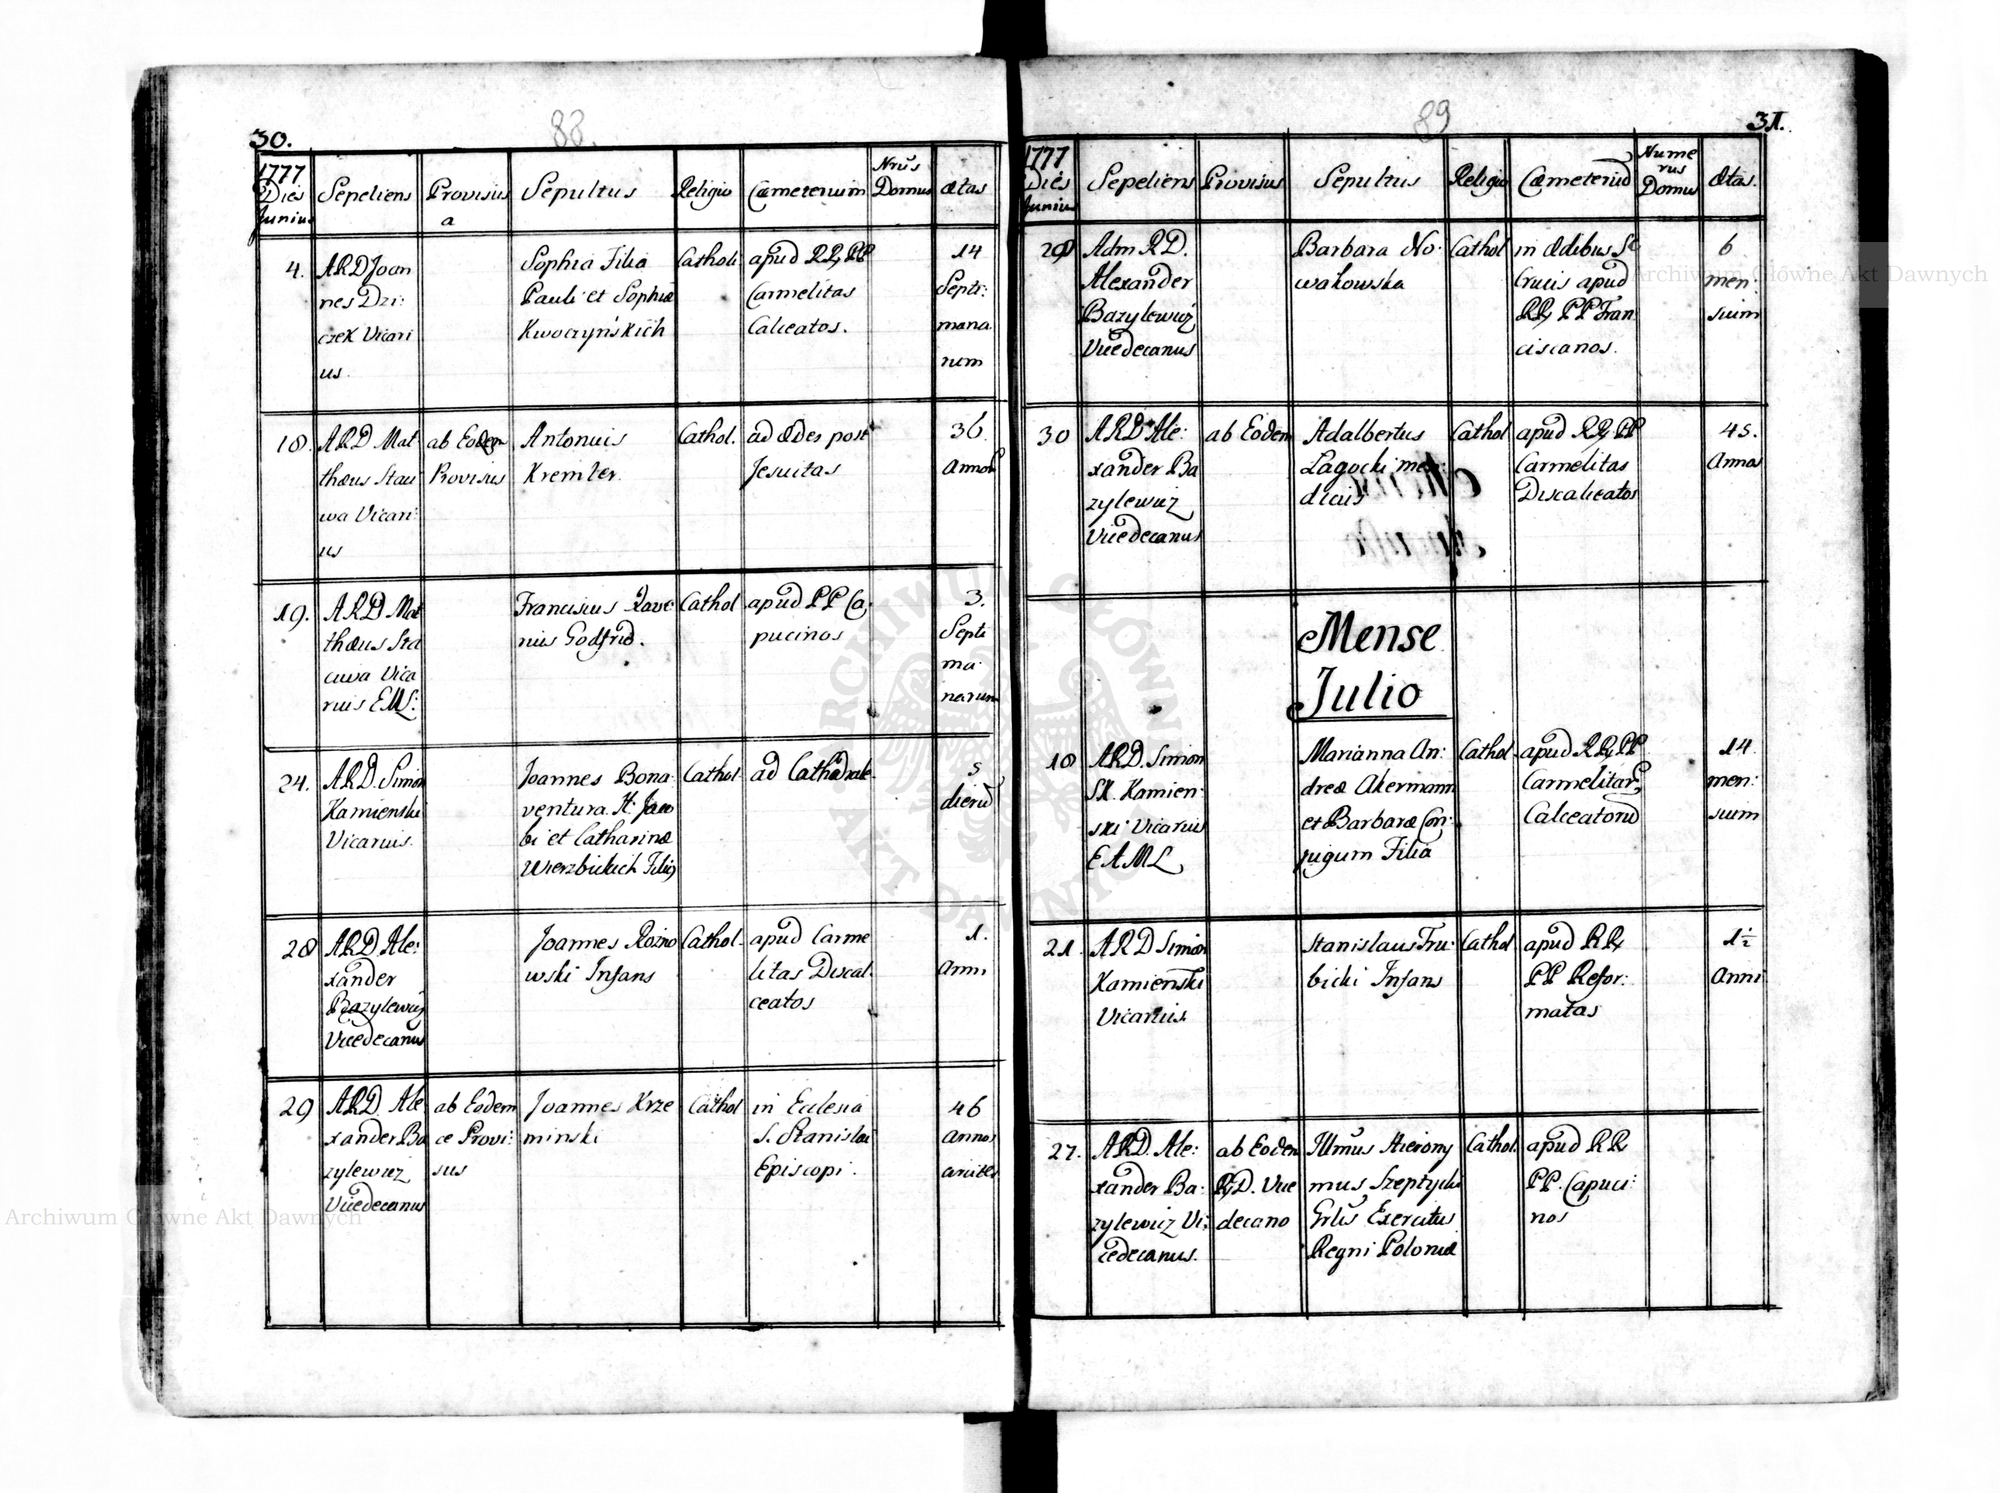 30.
88.
1777
Dies
Junius
Sepeliens
Provisus
a
Sepultus
Religio
Cæmeterium
Nrus
Domus
Ætas
4.
ARD Joan
nes Dzi:
czek Vicari
us.
Sophia Filia
Pauli et Sophiæ
Kwoczyńskich
Catholi
apud RR PP
Carmelitas
Calceatos.
14
Septi:
mana
rum
18.
ARD. Mat
thæus Stau
wa Vicari:
us
ab Eodem
Provisus
Antonius
Kremler.
Cathol.
ad Ædes post
Jesuitas
36.
Annor
19.
ARD Mat
thæus Sta
uwa Vica
rius EML:
Franciscus Xave:
rius Godfrid.
Cathol
apud PP Ca
pucinos
3.
Septi
ma
narum
24.
ARD. Simon
Kamienski
Vicarius.
Joannes Bona
ventura. H. Jaco
bi et Catharinæ
Wierzbickich Filius
Cathol
ad Cathedrale
5
dierum
28
ARD. Ale:
xander
Bazylewicz
Vicedecanus
Joannes Rozno
wski Infans
Cathol.
apud Carme
litas Discal
ceatos
1.
Anni
29
ARD. Ale
xander Ba
zylewicz
Vicedecanus
ab Eodem
ce Provi:
sus
Joannes Krze
minski
Cathol
in Ecclesia
S. Stanislai
Episcopi.
46
Annos
31.
89
1777
Dies
Junius
Sepeliens
Provisus
Sepultus
Religio
Cæmeterium
Nume
rus
Domus
Ætas.
29
Adm RD.
Alexander
Bazylewicz
Vicedecanus
Barbara No:
wakowska
Cathol
in Ædibus S.
Crucis apud
RR PP Fran
ciscanos.
6
men:
sium
30
ARD Ale:
xander Ba
zylewicz
Vicedecanus
ab Eodem
Adalbertus
Lagocki men:
dicus
Cathol
apud RR PP
Carmelitas
Discalceatos
45.
Annos
Mense
Julio
18
ARD. Simon
SK. Kamien:
ski Vicarius
EAML
Marianna An:
dreæ Akermann
et Barbaræ Con:
jugum Filia
Cathol
apud RR PP
Carmelitar
Calceatorum
14.
men:
sium
21.
ARD Simon
Kamienski
Vicarius.
Stanislaus Tru:
bicki Infans
Cathol
apud RR
PP Refor:
matas
1½
Anni
27.
ARD. Ale:
xander Ba:
zylewicz Vi:
cedecanus.
ab Eodem
RD. Vice
decano
Illmus Hierony
mus Szeptycki
Grlis Exercitus
Regni Poloniæ
Cathol.
apud RR
PP. Capuci:
nos
Archiwum Główne Akt Dawnych
Archiwum Główne Akt Dawnych
ARCHIWUM GŁÓWNE
AKT DAWNYCH